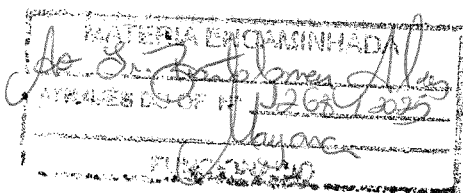 MATERIA ENCAMINHADA
Ao Sr. Bartolomeu Alves
ATRAVES DO OF Nº 1268/2025
Mayara
FUNCIONÁRIO